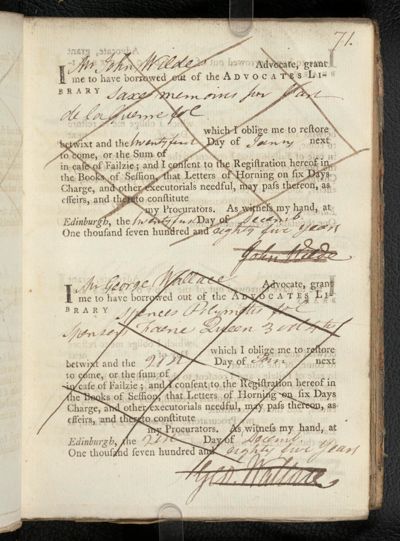 71.
I Mr John Wilde Advocate, grant
me to have borrowed out of the ADVOCATES LI-
BRARY Saxe memoirs sur l'art
de la guerre fol
which I oblige me to restore
betwixt and the twentyfirst Day of Janry next
to come, or the Sum of
in case of Failzie; and I consent to the Registration hereof in
the Books of Session, that Letters of Horning on six Days
Charge, and other executorials needful, may pass thereon, as
effeirs, and thereto constitute
my Procurators. As witness my hand, at
Edinburgh, the twentyfirst Day of Decemb
One thousand seven hundred and eighty five Years
John Wilde
I Mr George Wallace Advocate, grant
me to have borrowed out of the ADVOCATES LI-
BRARY Spences Polymetis fol
Spensers Faerie Queen 3 vol
which I oblige me to restore
betwixt and the 22d Day of Janry next
to come, or the sum of
in case of Failzie; and I consent to the Registration hereof in
the Books of Session, that Letters of Horning on six Days
Charge, and other executorials needful, may pass thereon, as
effeirs, and thereto constitute
my Procurators. As witness my hand, at
Edinburgh, the 22d Day of Decemb
One thousand seven hundred and eighty five Years
Geo. Wallace